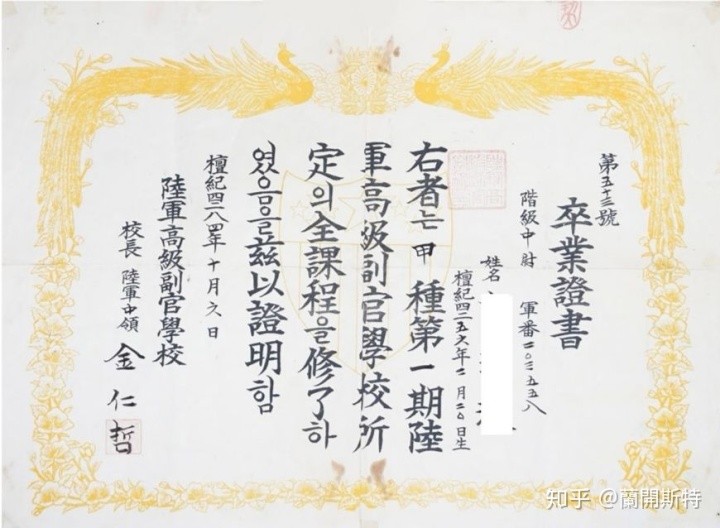 第五十三號
卒業證書
階級中尉 軍番二〇二五五八
姓名
檀紀四二五六年二月二〇日生
右者는 甲種第一期陸
軍高級副官學校所
定의全課程을修了하
였음을玆以證明함
檀紀四二八四年十月六日
陸軍高級副官學校
校長 陸軍中領 金仁哲
知乎 @蘭開斯特